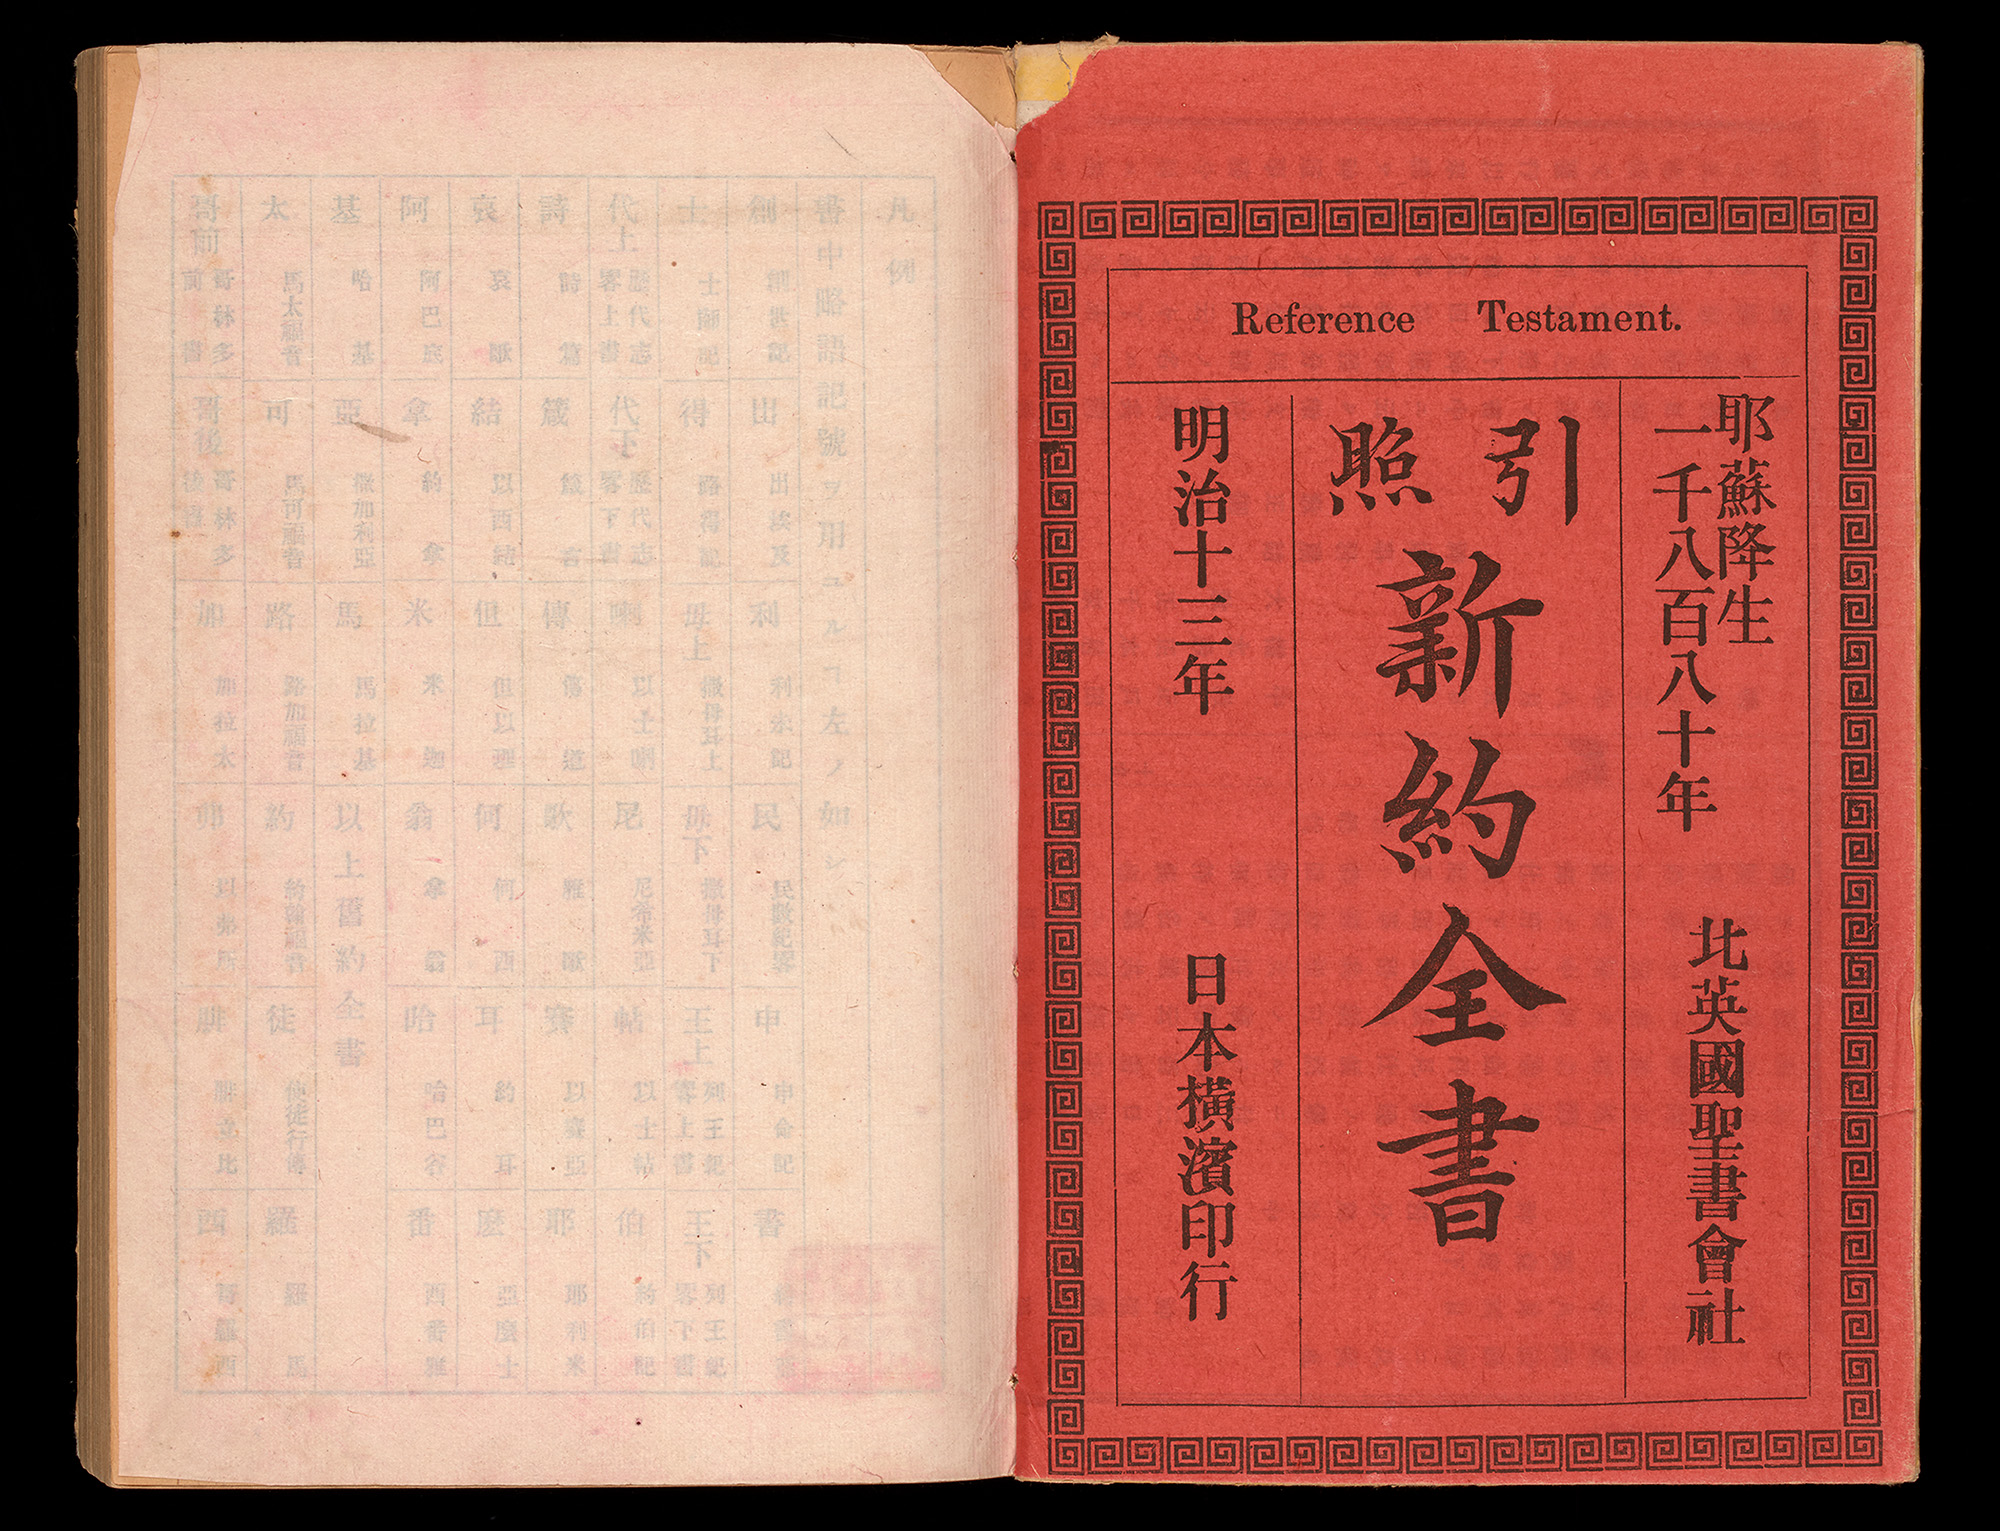 Reference Testament.
耶蘇降生
一千八百八十年 北英國聖書會社
引照
新約全書
明治十三年 日本橫濱印行
凡例
書中略語記號ヲ用ユルヿ左ノ如シ
創 創世記 出 出埃及 利 利未記 民 民數紀畧 申 申命記 書
士 士師記 得 路得記 母上 撒母耳上 母下 撒母耳下 王上 列王紀畧上書 王下 列王紀畧下書
代上 歷代志畧上書 代下 歷代志畧下書 喇 以士喇 尼 尼希米亞 帖 以士帖 伯 約伯記
詩 詩篇 箴 箴言 傳 傳道 歌 雅歌 賽 以賽亞 耶 耶利米
哀 哀歌 結 以西結 但 但以理 何 何西 耳 約耳 麽 亞麽士
阿 阿巴底 拿 約拿 米 米迦 翁 拿翁 哈 哈巴谷 番 西番雅
基 哈基 亞 撒加利亞 馬 馬拉基 以上舊約全書
太 馬太福音 可 馬可福音 路 路加福音 約 約翰福音 徒 使徒行傳 羅 羅馬
哥前 哥林多前書 哥後 哥林多後書 加 加拉太 弗 以弗所 腓 腓立比 西 哥羅西